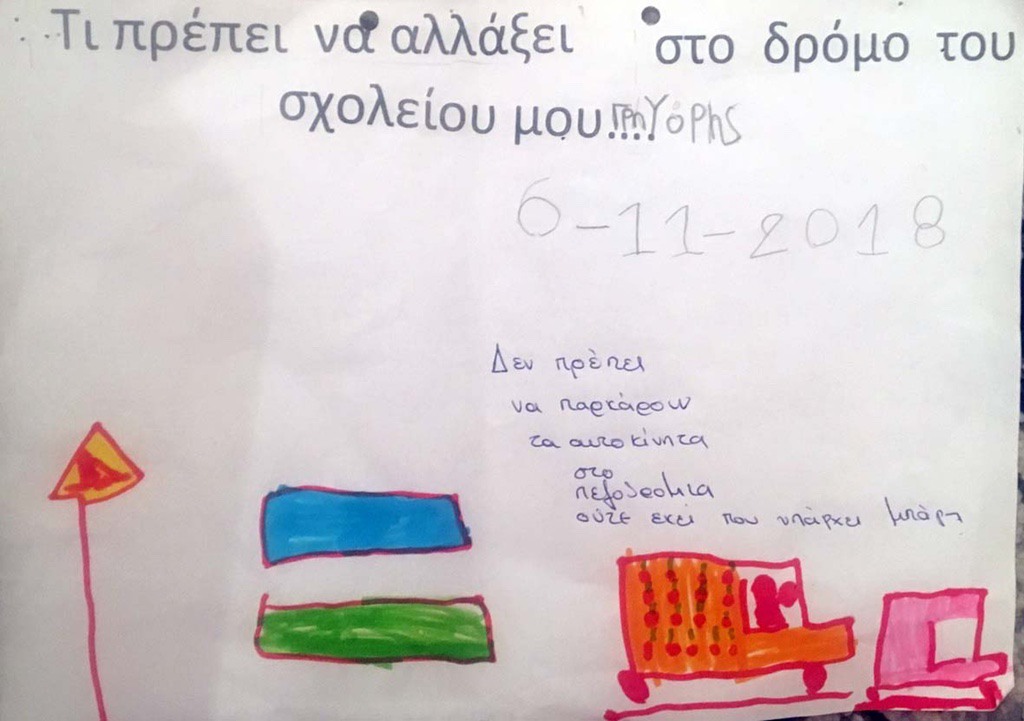 Τι πρέπει να αλλάξει στο δρόμο του
σχολείου μου....Γρηγόρης
6-11-2018
Δεν πρέπει
να παρκάρουν
τα αυτοκίνητα
στο
πεζοδρόμια
ούτε εκεί που υπάρχει μπάρα